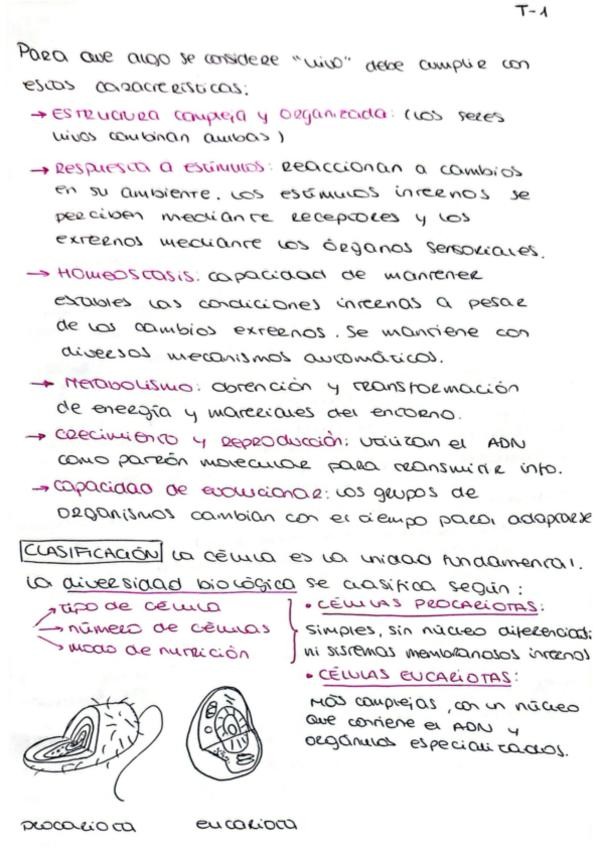 T-1
Para que algo se considere "vivo" debe cumplir con
estas características:
→ Estructura compleja y organizada: (los seres
vivos combinan ambas)
→ Respuesta a estímulos: reaccionan a cambios
en su ambiente. Los estímulos internos se
perciben mediante receptores y los
externos mediante los órganos sensoriales.
→ Homeostasis: capacidad de mantener
estables las condiciones internas a pesar
de los cambios externos. Se mantiene con
diversos mecanismos automáticos.
→ Metabolismo: obtención y transformación
de energía y materiales del entorno.
→ Crecimiento y reproducción: utilizan el ADN
como patrón molecular para transmitir info.
→ Capacidad de evolucionar: los grupos de
organismos cambian con el tiempo para adaptarse
CLASIFICACIÓN La célula es la unidad fundamental.
La diversidad biológica se clasifica según:
→ tipo de célula
→ número de células
→ modo de nutrición
• CÉLULAS PROCARIOTAS:
simples, sin núcleo diferenciado
ni sistemas membranosos internos
• CÉLULAS EUCARIOTAS:
Más complejas, con un núcleo
que contiene el ADN y
orgánulos especializados.
procariota
eucariota